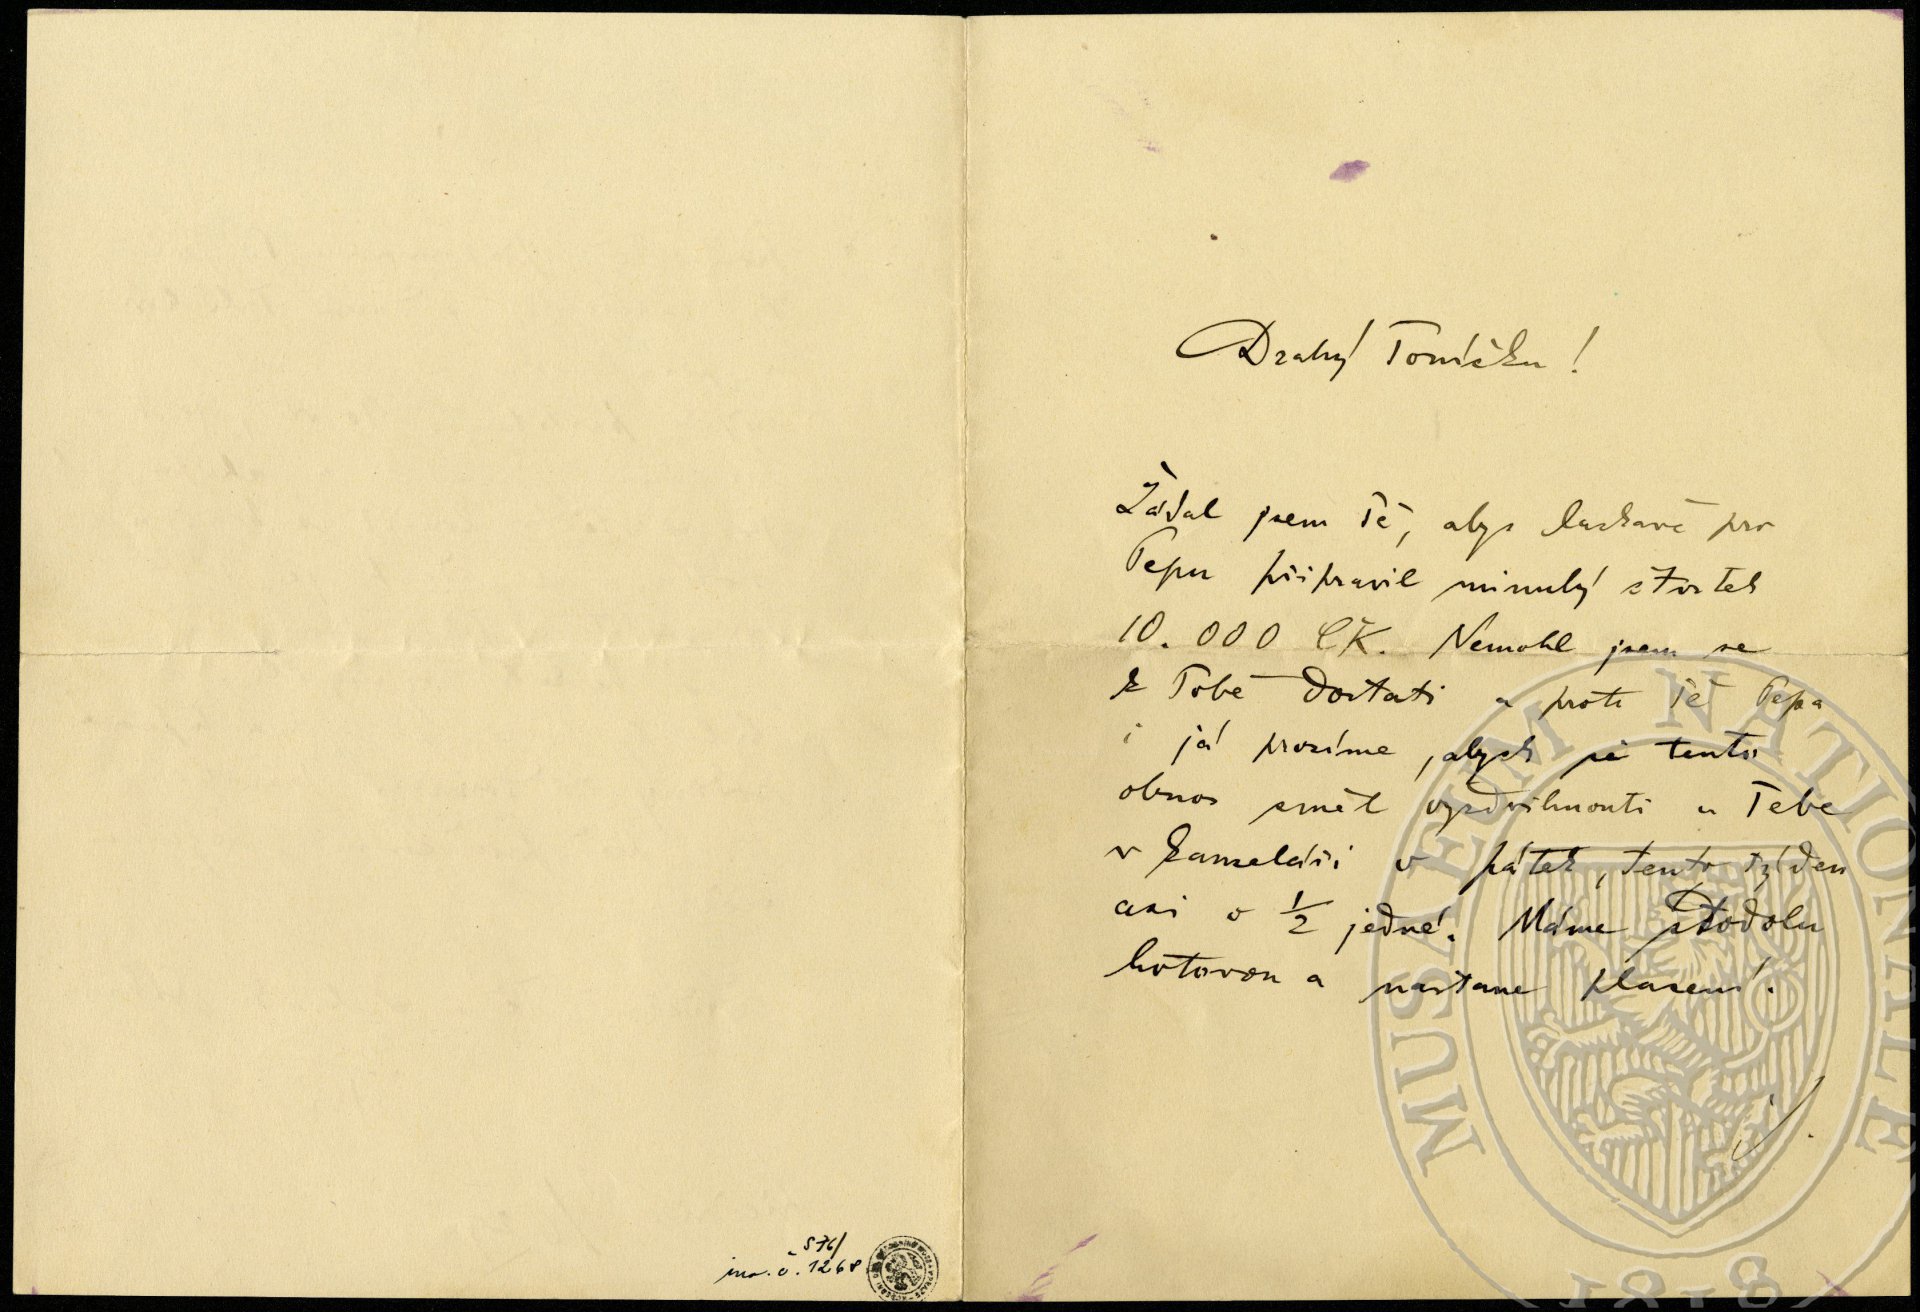 Drahý Toníčku!
Žádal jsem Tě, abys laskavě pro
Pepu připravil minulý čtvrtek
10.000 Čk. Nemohl jsem se
k Tobě dostati a proto Tě Pepa
i já prosíme, abych si tento
obnos směl vyzdvihnouti u Tebe
v kanceláři v pátek, tento týden
asi o ½ jedné. Máme stodolu
hotovou a nastane placení.
J.
576/
inv. č. 1268
MUSAEUM NATIONALE
1818